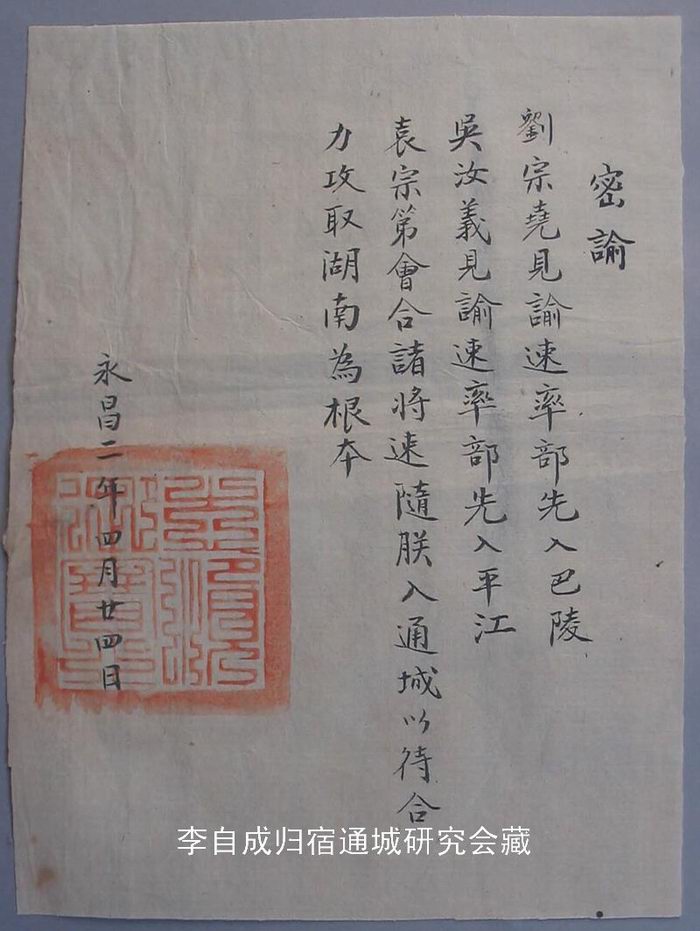 密諭
劉宗堯見諭速率部先入巴陵
吳汝義見諭速率部先入平江
袁宗第會合諸將速隨朕入通城以待合
力攻取湖南為根本
永昌二年四月廿四日
李自成归宿通城研究会藏